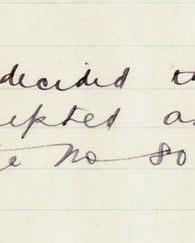 decided th
epted as
te No 80